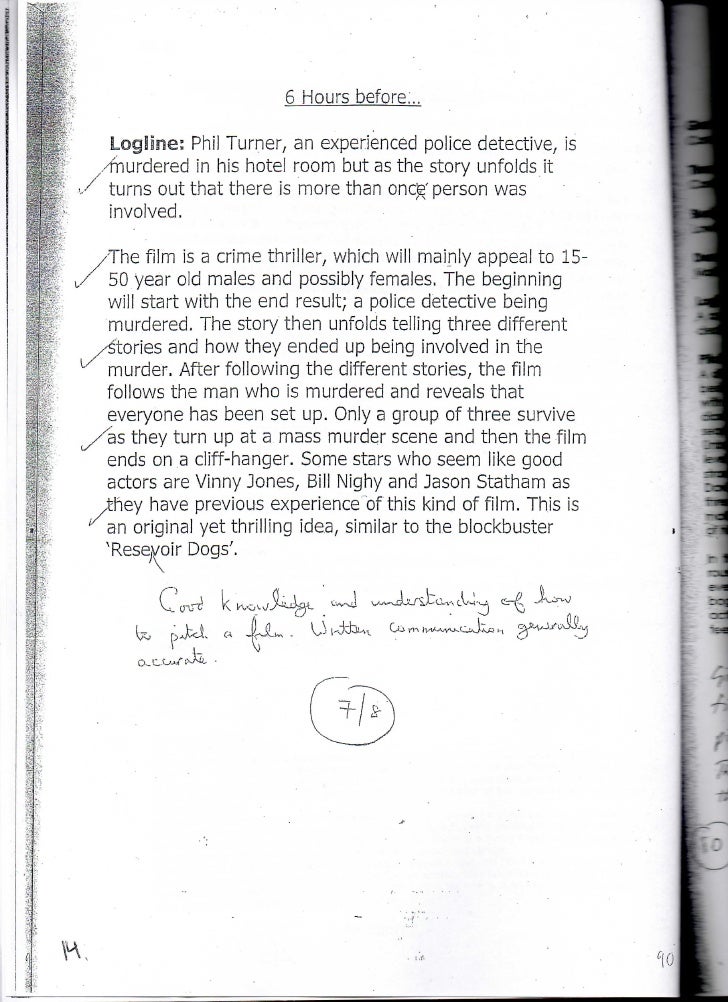 6 Hours before...
Logline: Phil Turner, an experienced police detective, is
murdered in his hotel room but as the story unfolds it
turns out that there is more than once person was
involved.
The film is a crime thriller, which will mainly appeal to 15-
50 year old males and possibly females. The beginning
will start with the end result; a police detective being
murdered. The story then unfolds telling three different
stories and how they ended up being involved in the
murder. After following the different stories, the film
follows the man who is murdered and reveals that
everyone has been set up. Only a group of three survive
as they turn up at a mass murder scene and then the film
ends on a cliff-hanger. Some stars who seem like good
actors are Vinny Jones, Bill Nighy and Jason Statham as
they have previous experience of this kind of film. This is
an original yet thrilling idea, similar to the blockbuster
'Resevoir Dogs'.
Good knowledge and understanding of how
to pitch a film. Written communication generally
accurate.
7/8
14.
90